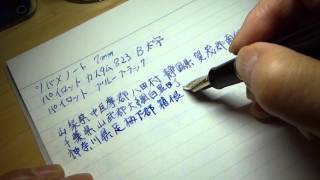 ツバメノート 7mm
パイロット カスタム823 B 太字
パイロット ブルーブラック
山梨県中巨摩郡八田村 静岡県賀茂郡南
千葉県山武郡大網白里町
神奈川県足柄下郡箱根